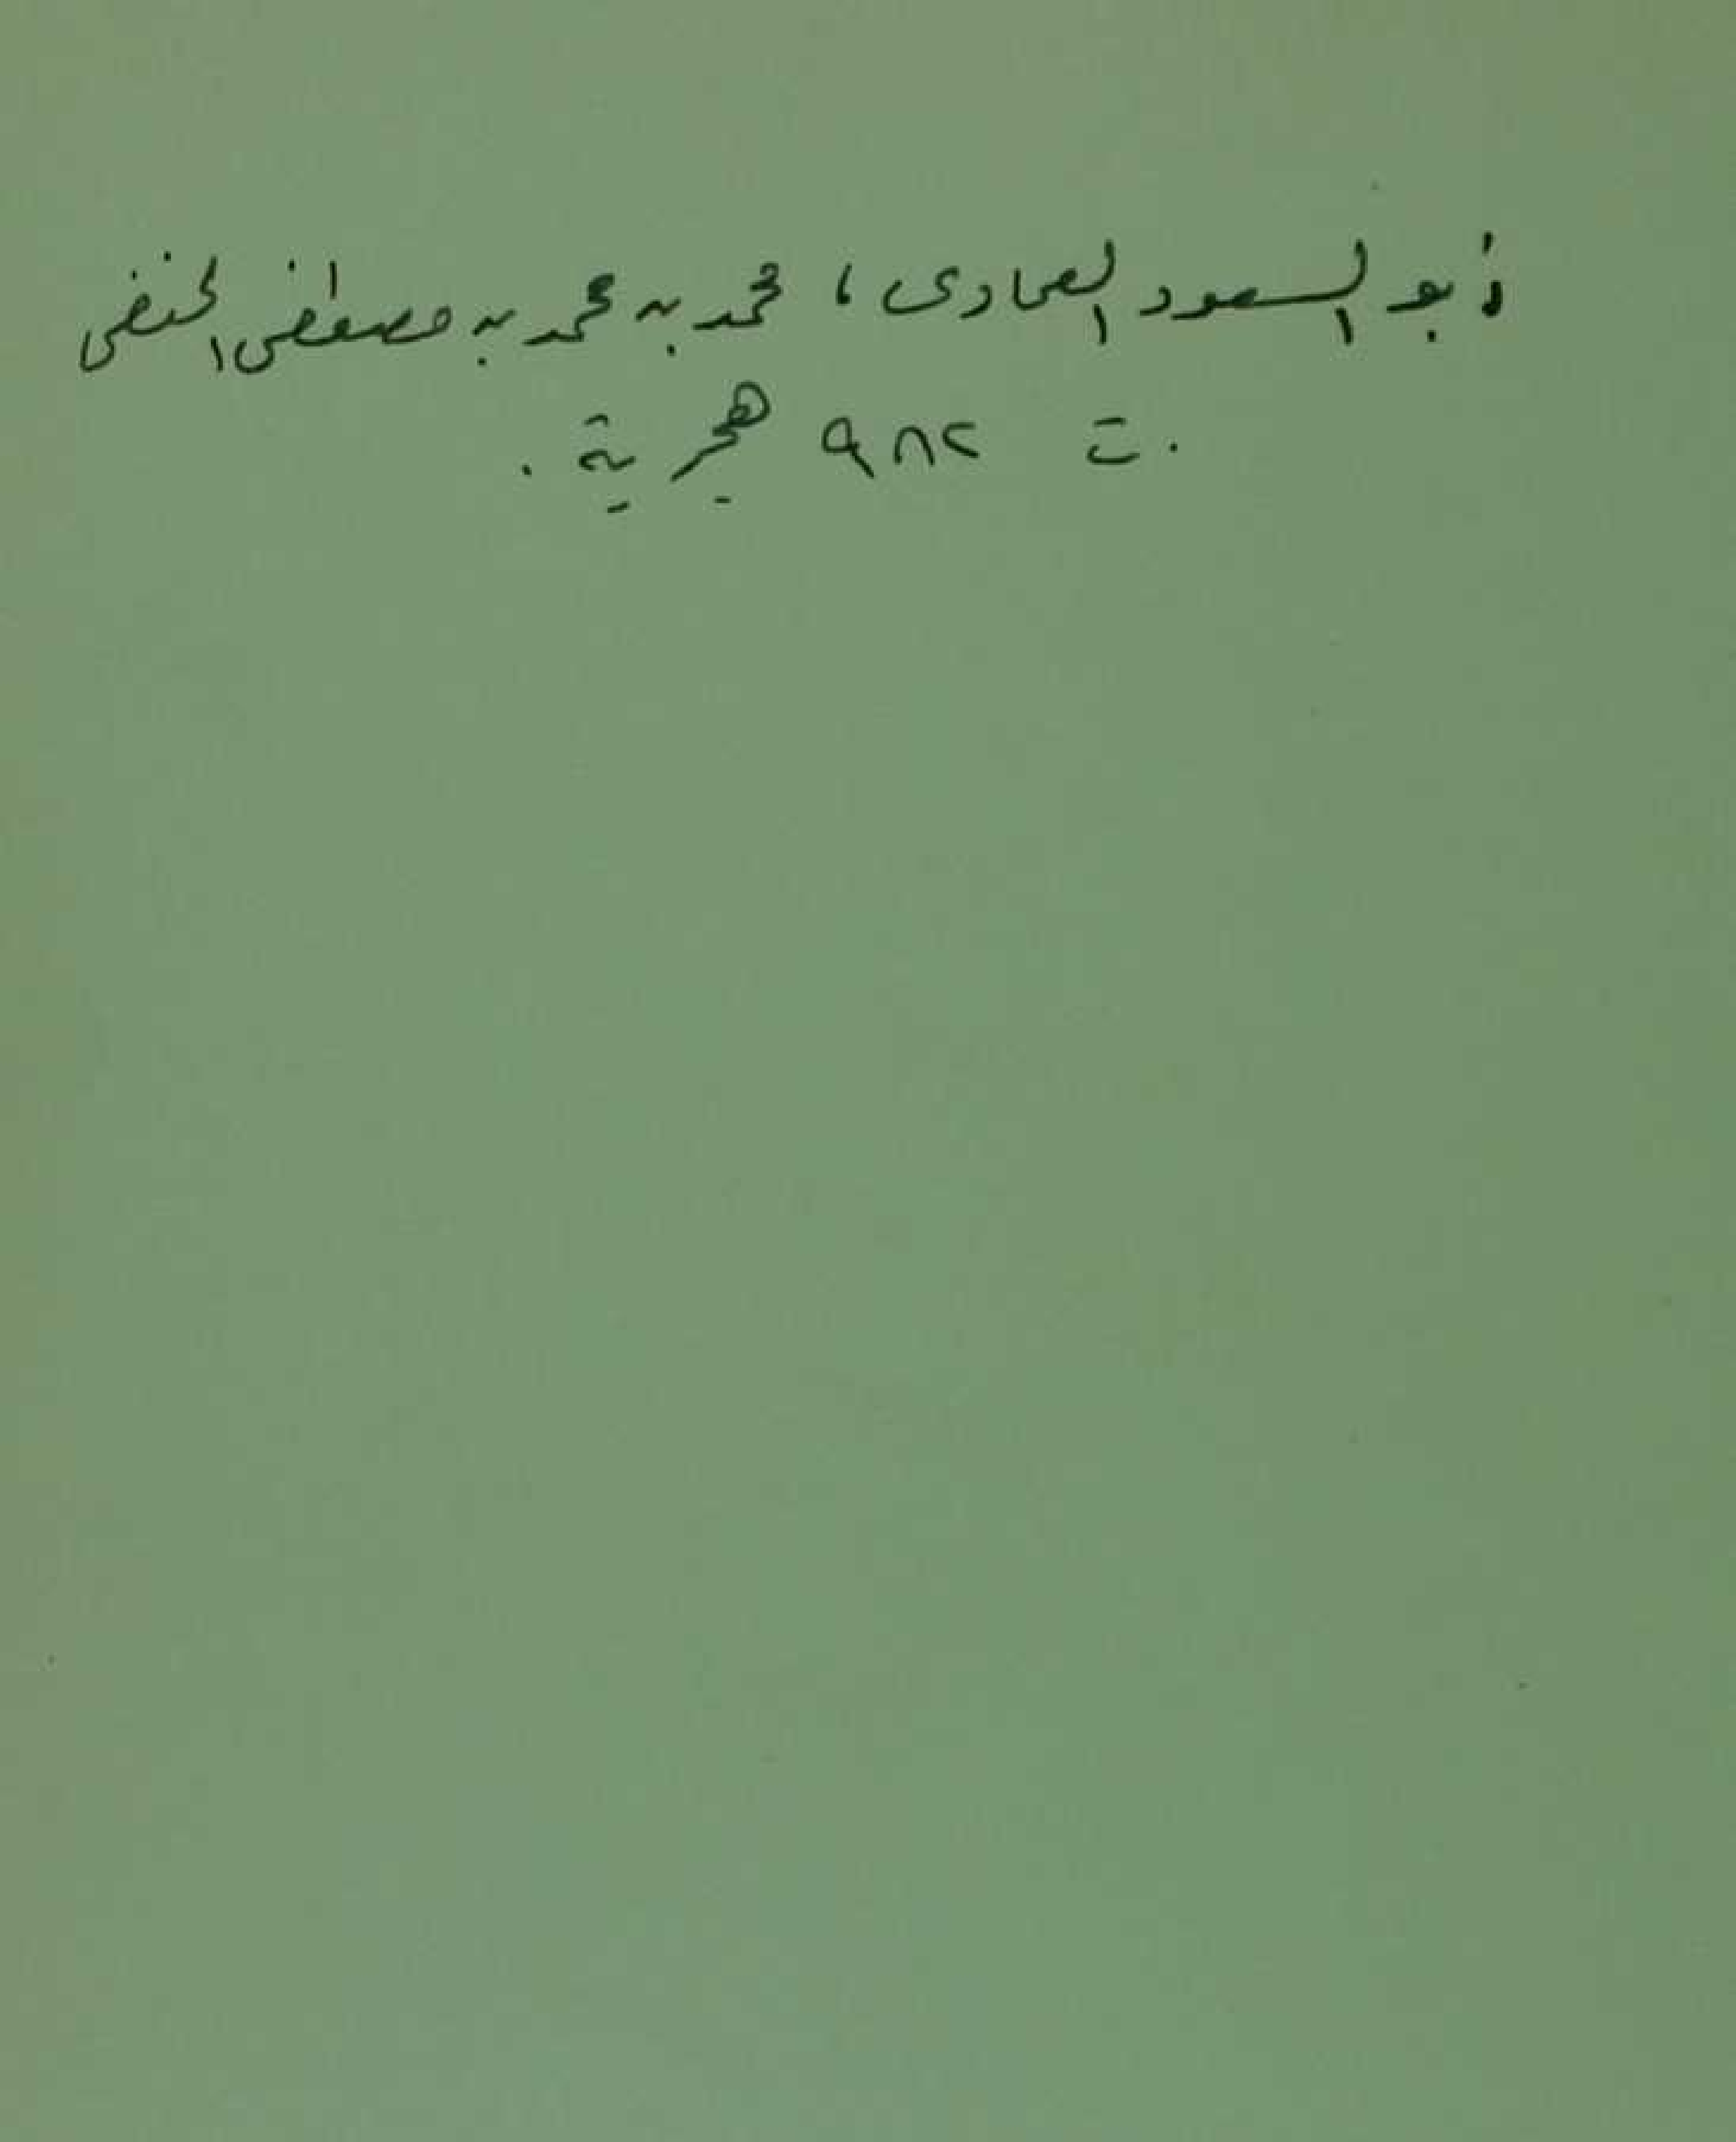 أبو السعود العمادى، محمد بن محمد بن مصطفى الحنفى
ت ٩٨٢ هجرية.